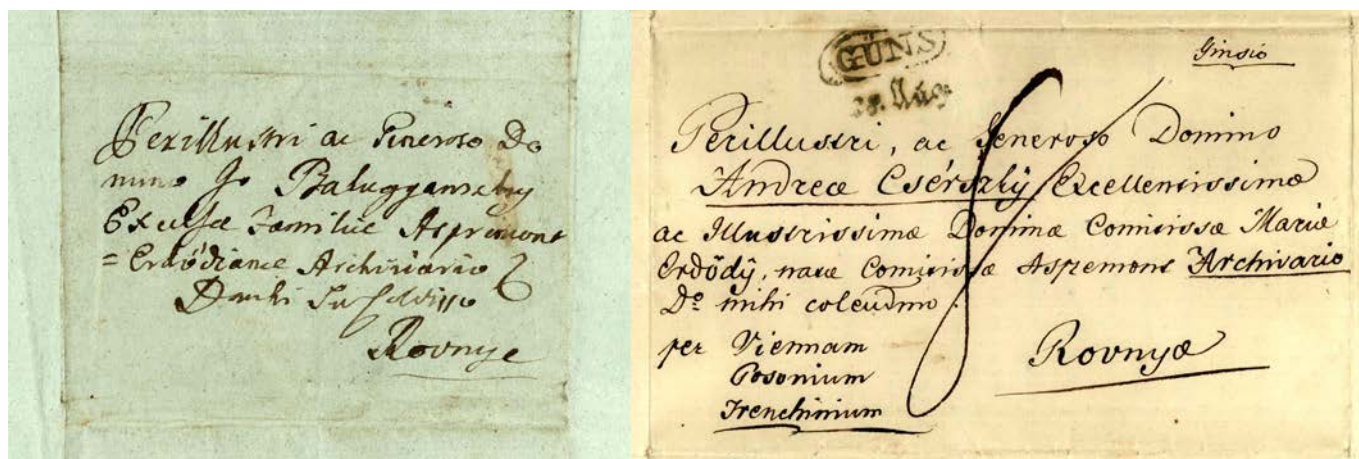 Perillustri ac Generoso Do
mino Jo
Excelsae Familiae Aspremont
= Erdödianae Archivario
Rovnye
GÜNS
28. Aug.
Ginsio
Perillustri, ac Generoso Domino
Andreæ Csérszky Excellentissimæ
ac Illustrissimæ Dominæ Comitissæ Mariæ
Erdödÿ, natæ Comitissæ Aspemont Archivario
Dº mihi colendmo.
per Viennam
Posonium
Trenchinium
Rovnyæ